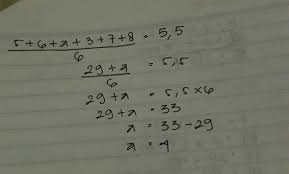 5+6+a+3+7+8 = 5,5
6
29+a = 5,5
6
29+a = 5,5 x 6
29+a = 33
a = 33-29
a = 4